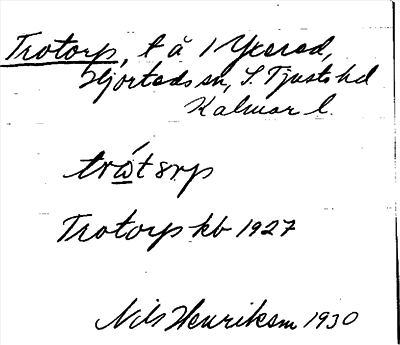 Trotorp, t å 1 Ycerad,
Hjorteds sn, S. Tjusts hd
Kalmar l.
trώt8rp
Trotorp kb 1927
Nils Henriksson 1930